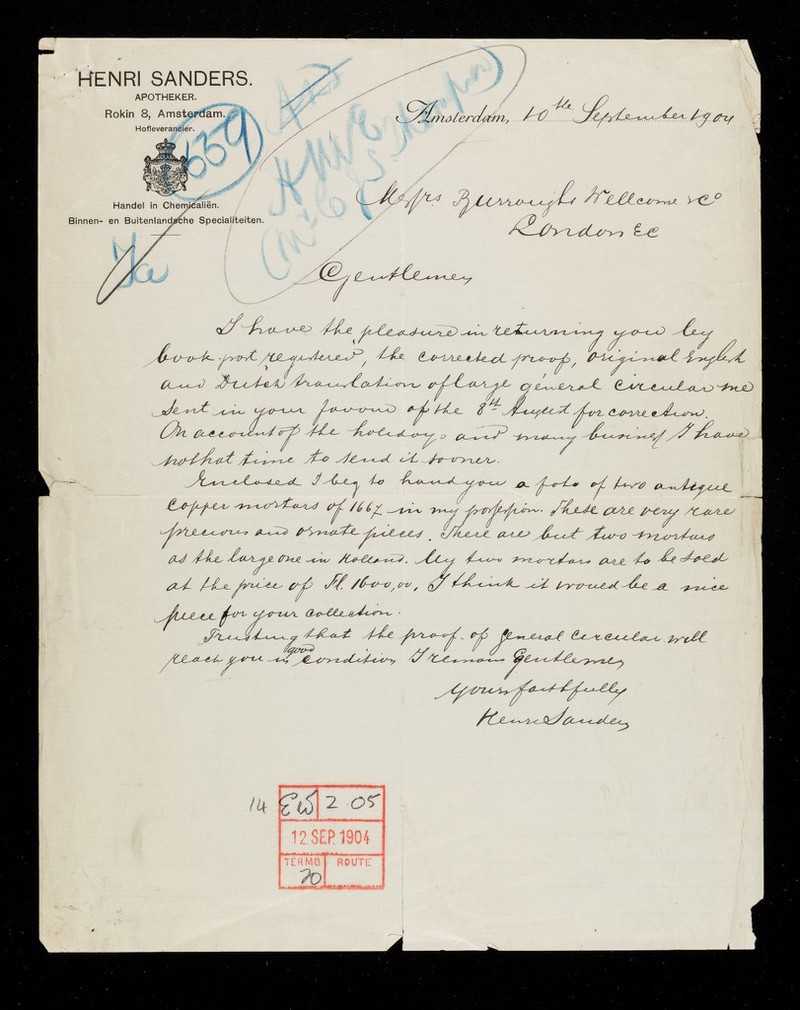 HENRI SANDERS.
APOTHEKER.
Rokin 8, Amsterdam.
Hofleverancier.
639
Handel in Chemicaliën.
Binnen- en Buitenlandsche Specialiteiten.
Amsterdam, 10th September 1904
Messrs Burroughs Wellcome & Co
London EC
Gentlemen
I have the pleasure in returning you by
book-post "registered", the corrected proof, original English
and Dutch translation of large general circular me
sent in your favour of the 8th August for correction.
On account of the holidays and many business I have
not that time to send it sooner.
Enclosed I beg to hand you a foto of two antique
copper mortars of 1667 in my possession. These are very rare
precious and ornate pieces. There are but two mortars
as the large one in Holland. My two mortars are to be sold
at the price of Fl. 1600,00, I think it would be a nice
piece for your collection.
Trusting that the proof of general circular will
reach you in good condition I remain Gentlemen
yours faithfully
Henri Sanders
14
EW 2.05
12 SEP. 1904
TERMS ROUTE
70